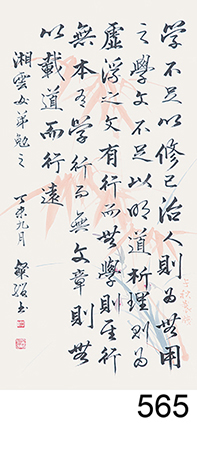 學不足以修己治人則為無用
之學文不足以明道析理則為
虛浮之文有行而無學則至行
無本有學行而無文章則無
以載道而行遠
湘雲女弟勉之
丁未九月
565